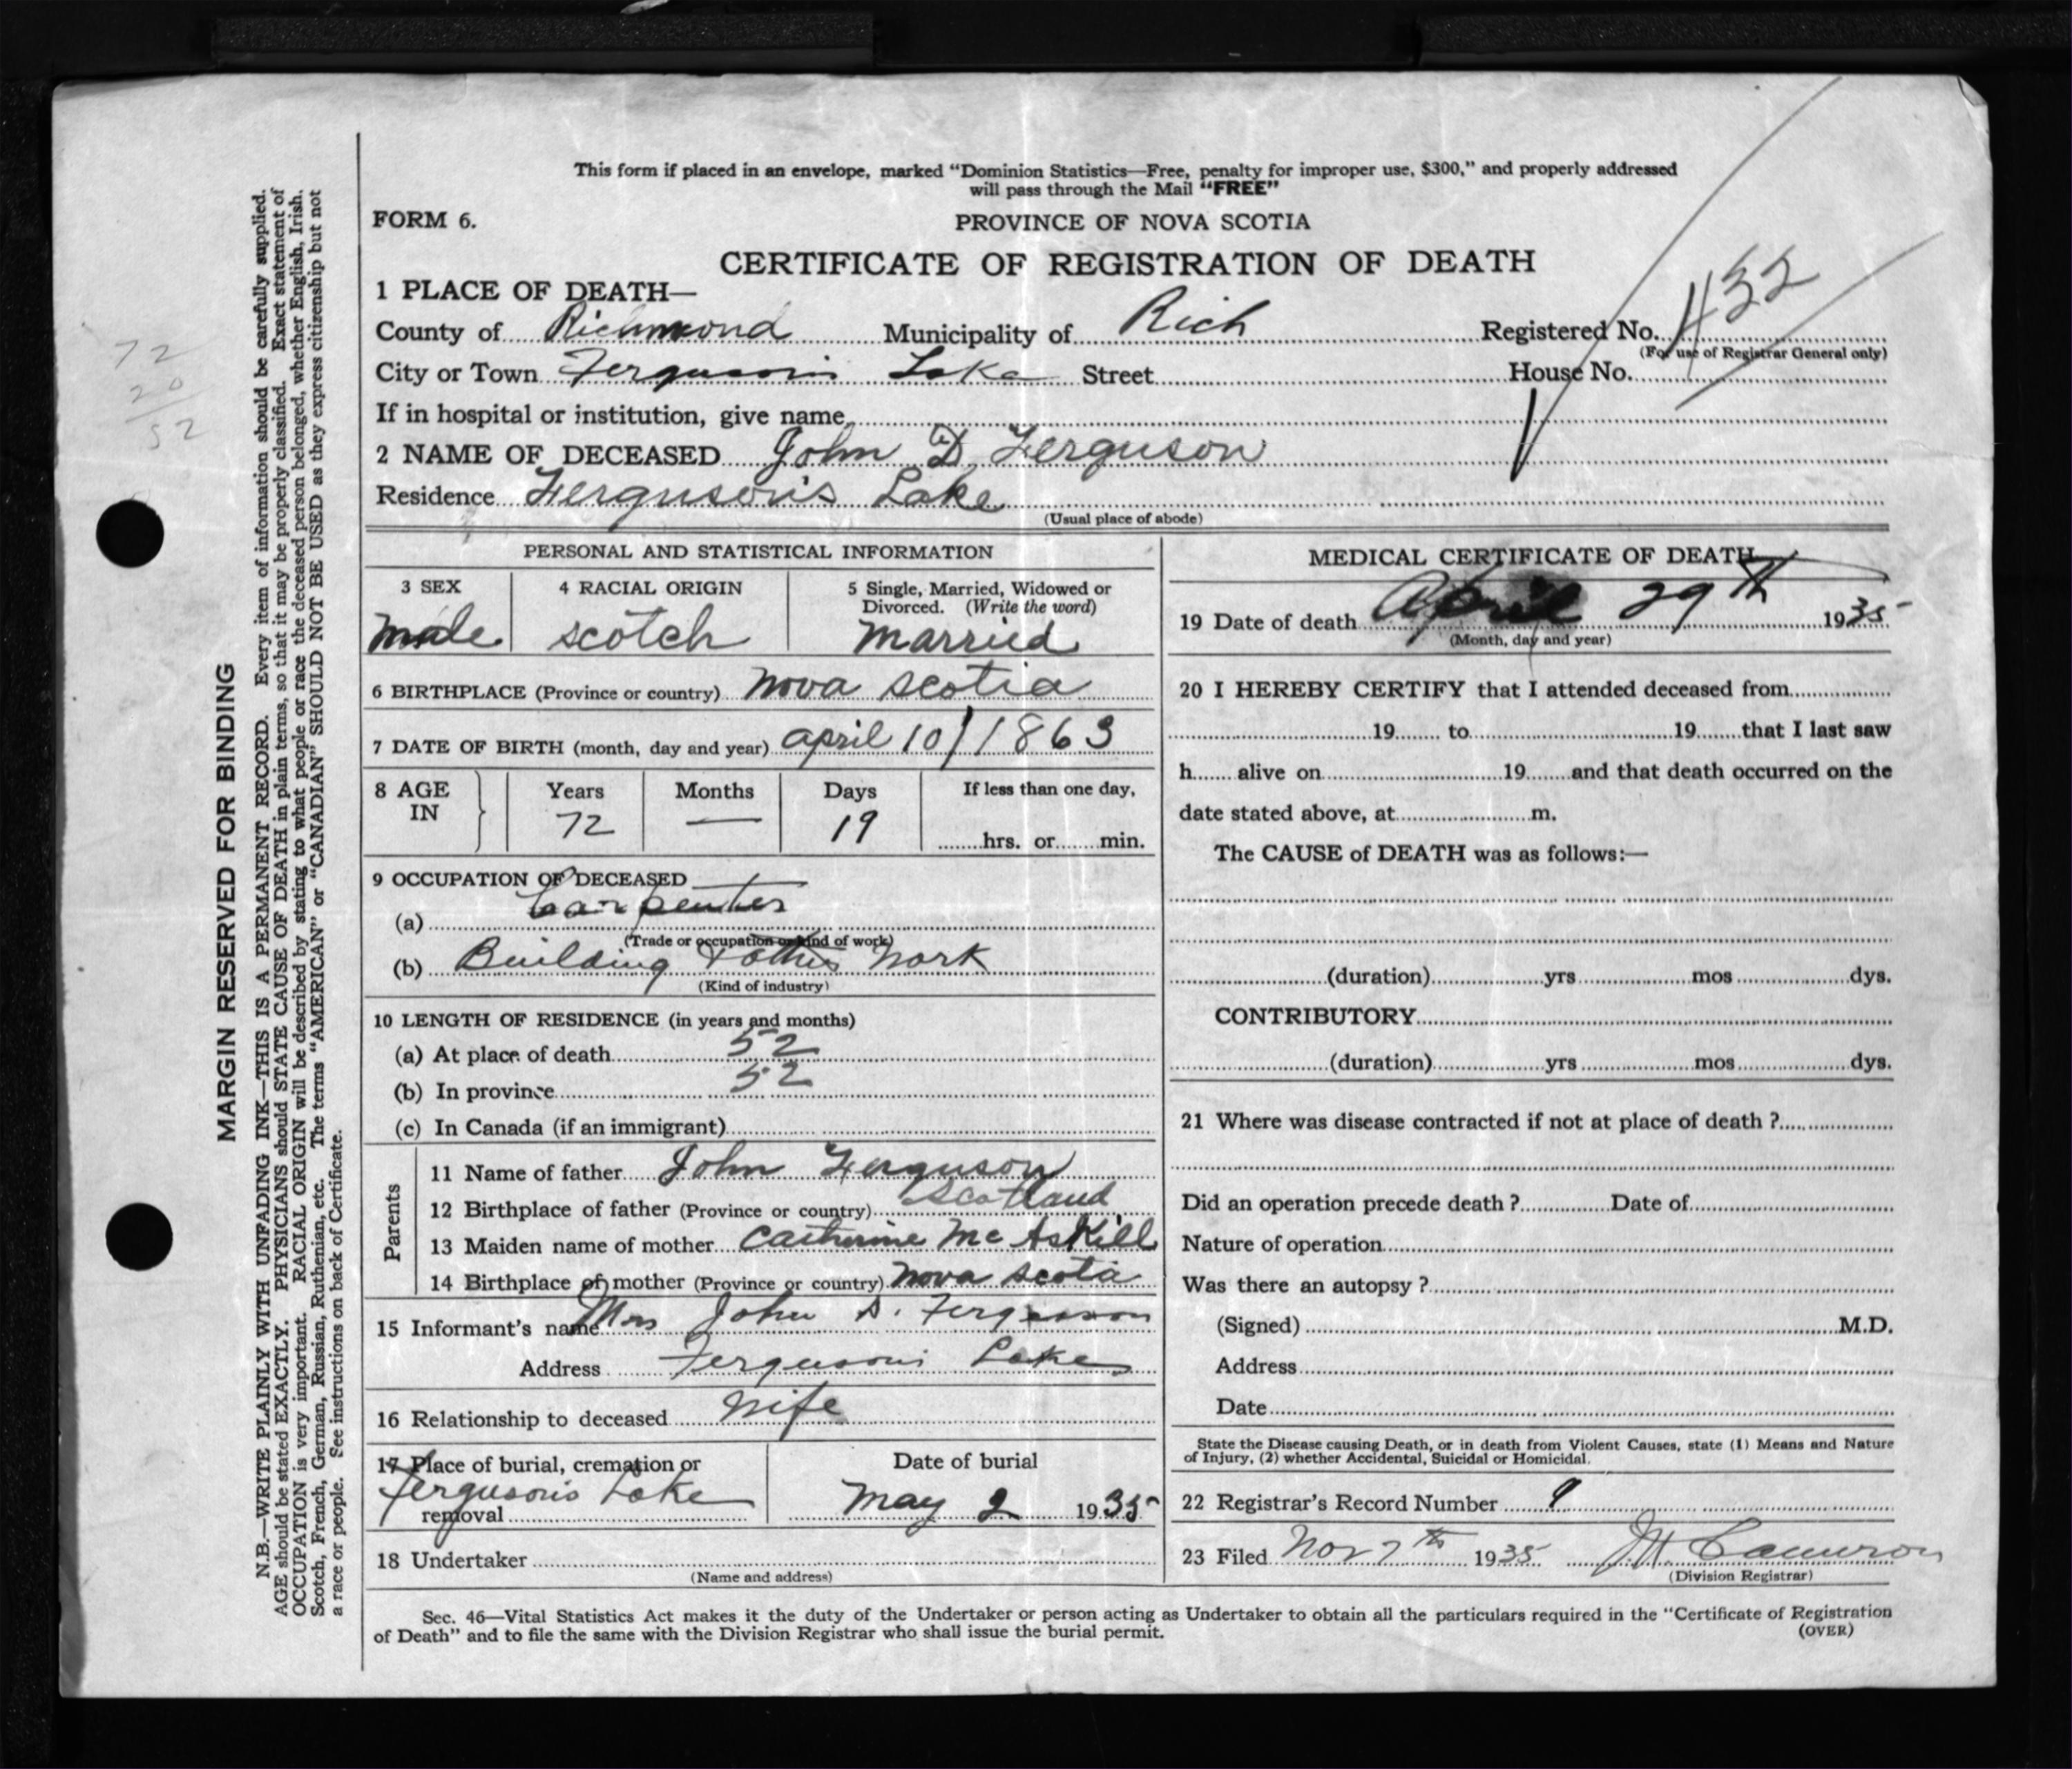 This form if placed in an envelope, marked “Dominion Statistics—Free, penalty for improper use, $300,” and properly addressed
will pass through the Mail “FREE”
FORM 6.
PROVINCE OF NOVA SCOTIA
CERTIFICATE OF REGISTRATION OF DEATH
1 PLACE OF DEATH—
County of Richmond Municipality of Rich Registered No. 432
(For use of Registrar General only)
City or Town Fergusons Lake Street House No.
If in hospital or institution, give name
2 NAME OF DECEASED John D. Ferguson
Residence Ferguson's Lake
(Usual place of abode)
PERSONAL AND STATISTICAL INFORMATION
3 SEX
male
4 RACIAL ORIGIN
scotch
5 Single, Married, Widowed or
Divorced. (Write the word)
married
6 BIRTHPLACE (Province or country) Nova Scotia
7 DATE OF BIRTH (month, day and year) april 10/1863
8 AGE IN
Years Months Days If less than one day,
72 — 19 hrs. or min.
9 OCCUPATION OF DECEASED
(a) Carpenter
(Trade or occupation or kind of work)
(b) Building & other work
(Kind of industry)
10 LENGTH OF RESIDENCE (in years and months)
(a) At place of death 52
(b) In province 52
(c) In Canada (if an immigrant)
Parents
11 Name of father John Ferguson
12 Birthplace of father (Province or country) Scotland
13 Maiden name of mother Catherine Mc Askill
14 Birthplace of mother (Province or country) Nova Scotia
15 Informant's name Mrs John D. Ferguson
Address Fergusons Lake
16 Relationship to deceased Wife
17 Place of burial, cremation or
removal Ferguson's Lake
Date of burial
May 2 1935
18 Undertaker
(Name and address)
MEDICAL CERTIFICATE OF DEATH
19 Date of death April 29th 1935
(Month, day and year)
20 I HEREBY CERTIFY that I attended deceased from
19 to 19 that I last saw
h alive on 19 and that death occurred on the
date stated above, at m.
The CAUSE of DEATH was as follows:—
(duration) yrs mos dys.
CONTRIBUTORY
(duration) yrs mos dys.
21 Where was disease contracted if not at place of death ?
Did an operation precede death ? Date of
Nature of operation
Was there an autopsy ?
(Signed) M.D.
Address
Date
State the Disease causing Death, or in death from Violent Causes, state (1) Means and Nature
of Injury, (2) whether Accidental, Suicidal or Homicidal.
22 Registrar's Record Number 9
23 Filed Nov 7th 1935 J.M. Cameron
(Division Registrar)
Sec. 46—Vital Statistics Act makes it the duty of the Undertaker or person acting as Undertaker to obtain all the particulars required in the “Certificate of Registration
of Death” and to file the same with the Division Registrar who shall issue the burial permit. (OVER)
72
20
52
MARGIN RESERVED FOR BINDING
N.B.—WRITE PLAINLY WITH UNFADING INK—THIS IS A PERMANENT RECORD. Every item of information should be carefully supplied.
AGE should be stated EXACTLY. PHYSICIANS should STATE CAUSE OF DEATH in plain terms, so that it may be properly classified. Exact statement of
OCCUPATION is very important. RACIAL ORIGIN will be described by stating to what people or race the deceased person belonged, whether English, Irish.
Scotch, French, German, Russian, Ruthenian, etc. The terms “AMERICAN” or “CANADIAN” SHOULD NOT BE USED as they express citizenship but not
a race or people. See instructions on back of Certificate.